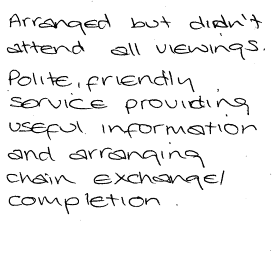 Arranged but didn't
attend all viewings.
Polite, friendly
service providing
useful information
and arranging
chain exchange/
completion.